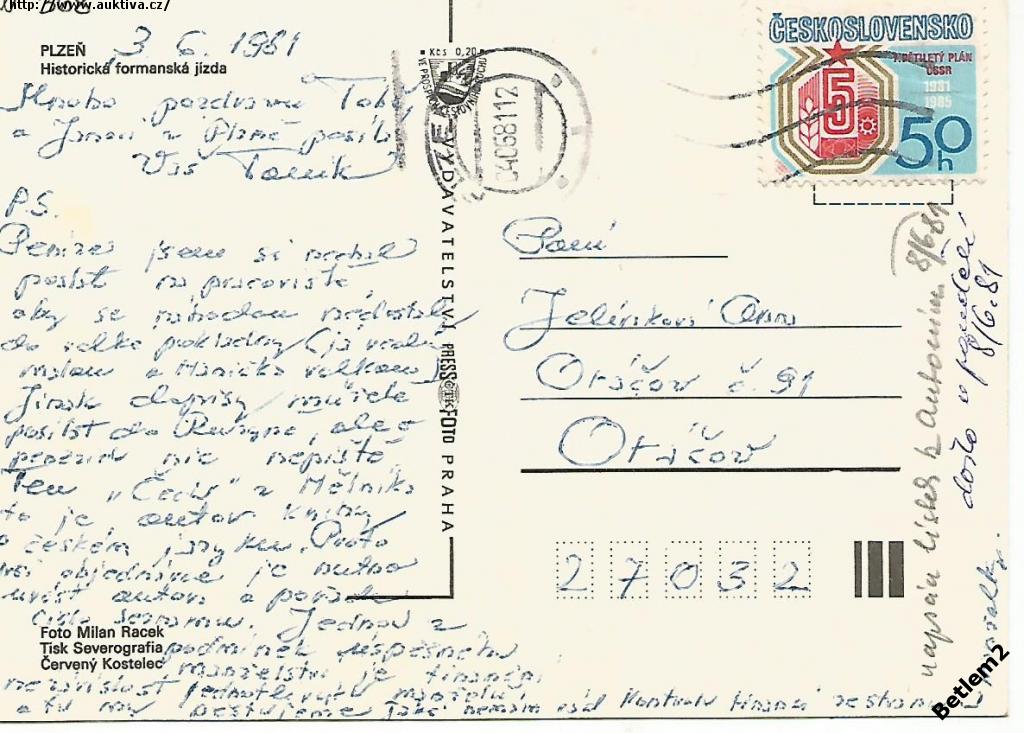 http://www.auktiva.cz/
PLZEŇ 3 6. 1981
Historická formanská jízda
Mnoho pozdravů
a z Plzně posílá
Váš Toník
P.S.
Peníze jsem si nechal
poslat na pracoviště,
aby se náhodou nedostaly
do velké pokladny (já vedu
malou a Hanička velkou)
Jinak dopisy můžete
posílat do, ale o
penězích nic nepište
Ten „Čechů" z Mělníka
to je, autor knihy
o českém jazyku. Proto
při objednávce je nutno
uvést autora a pořad.
číslo seznamu. Jednou z
podmínek úspěšného
manželství je finanční
nezávislost jednotlivých manželů,
a tu my pěstujeme také nemám rád kontrolu financí ze strany
Foto Milan Racek
Tisk Severografia
Červený Kostelec
VYDAVATELSTVÍ PRESSFOTO PRAHA
Kčs 0,20
04068112
ČESKOSLOVENSKO
7. PĚTILETÝ PLÁN
ČSSR
1981
1985
5
50 h
Paní
Jelínková Anna
Otáčov č. 91
Otáčov
27032
napsán lístek Antonínem 8/6 81
došlo v pondělí
8/6.81
Betlem2